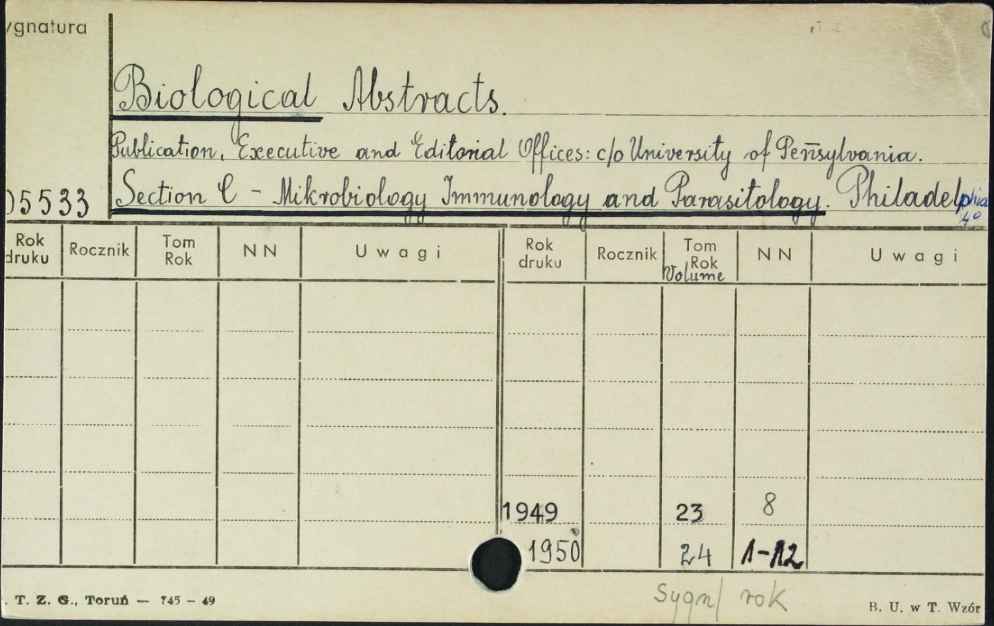 ygnatura
Biological Abstracts.
Publication, Executive and Editorial Offices: c/o University of Pensylvania.
05533 Section C - Mikrobiology Immunology and Parasitology. Philadelphia
4°
Rok druku Rocznik Tom Rok NN Uwagi Rok druku Rocznik Tom Rok Volume NN Uwagi
1949 23 8
1950 24 1-12
Sygn/ rok
. T. Z. G., Toruń — 745 - 49 B. U. w T. Wzór